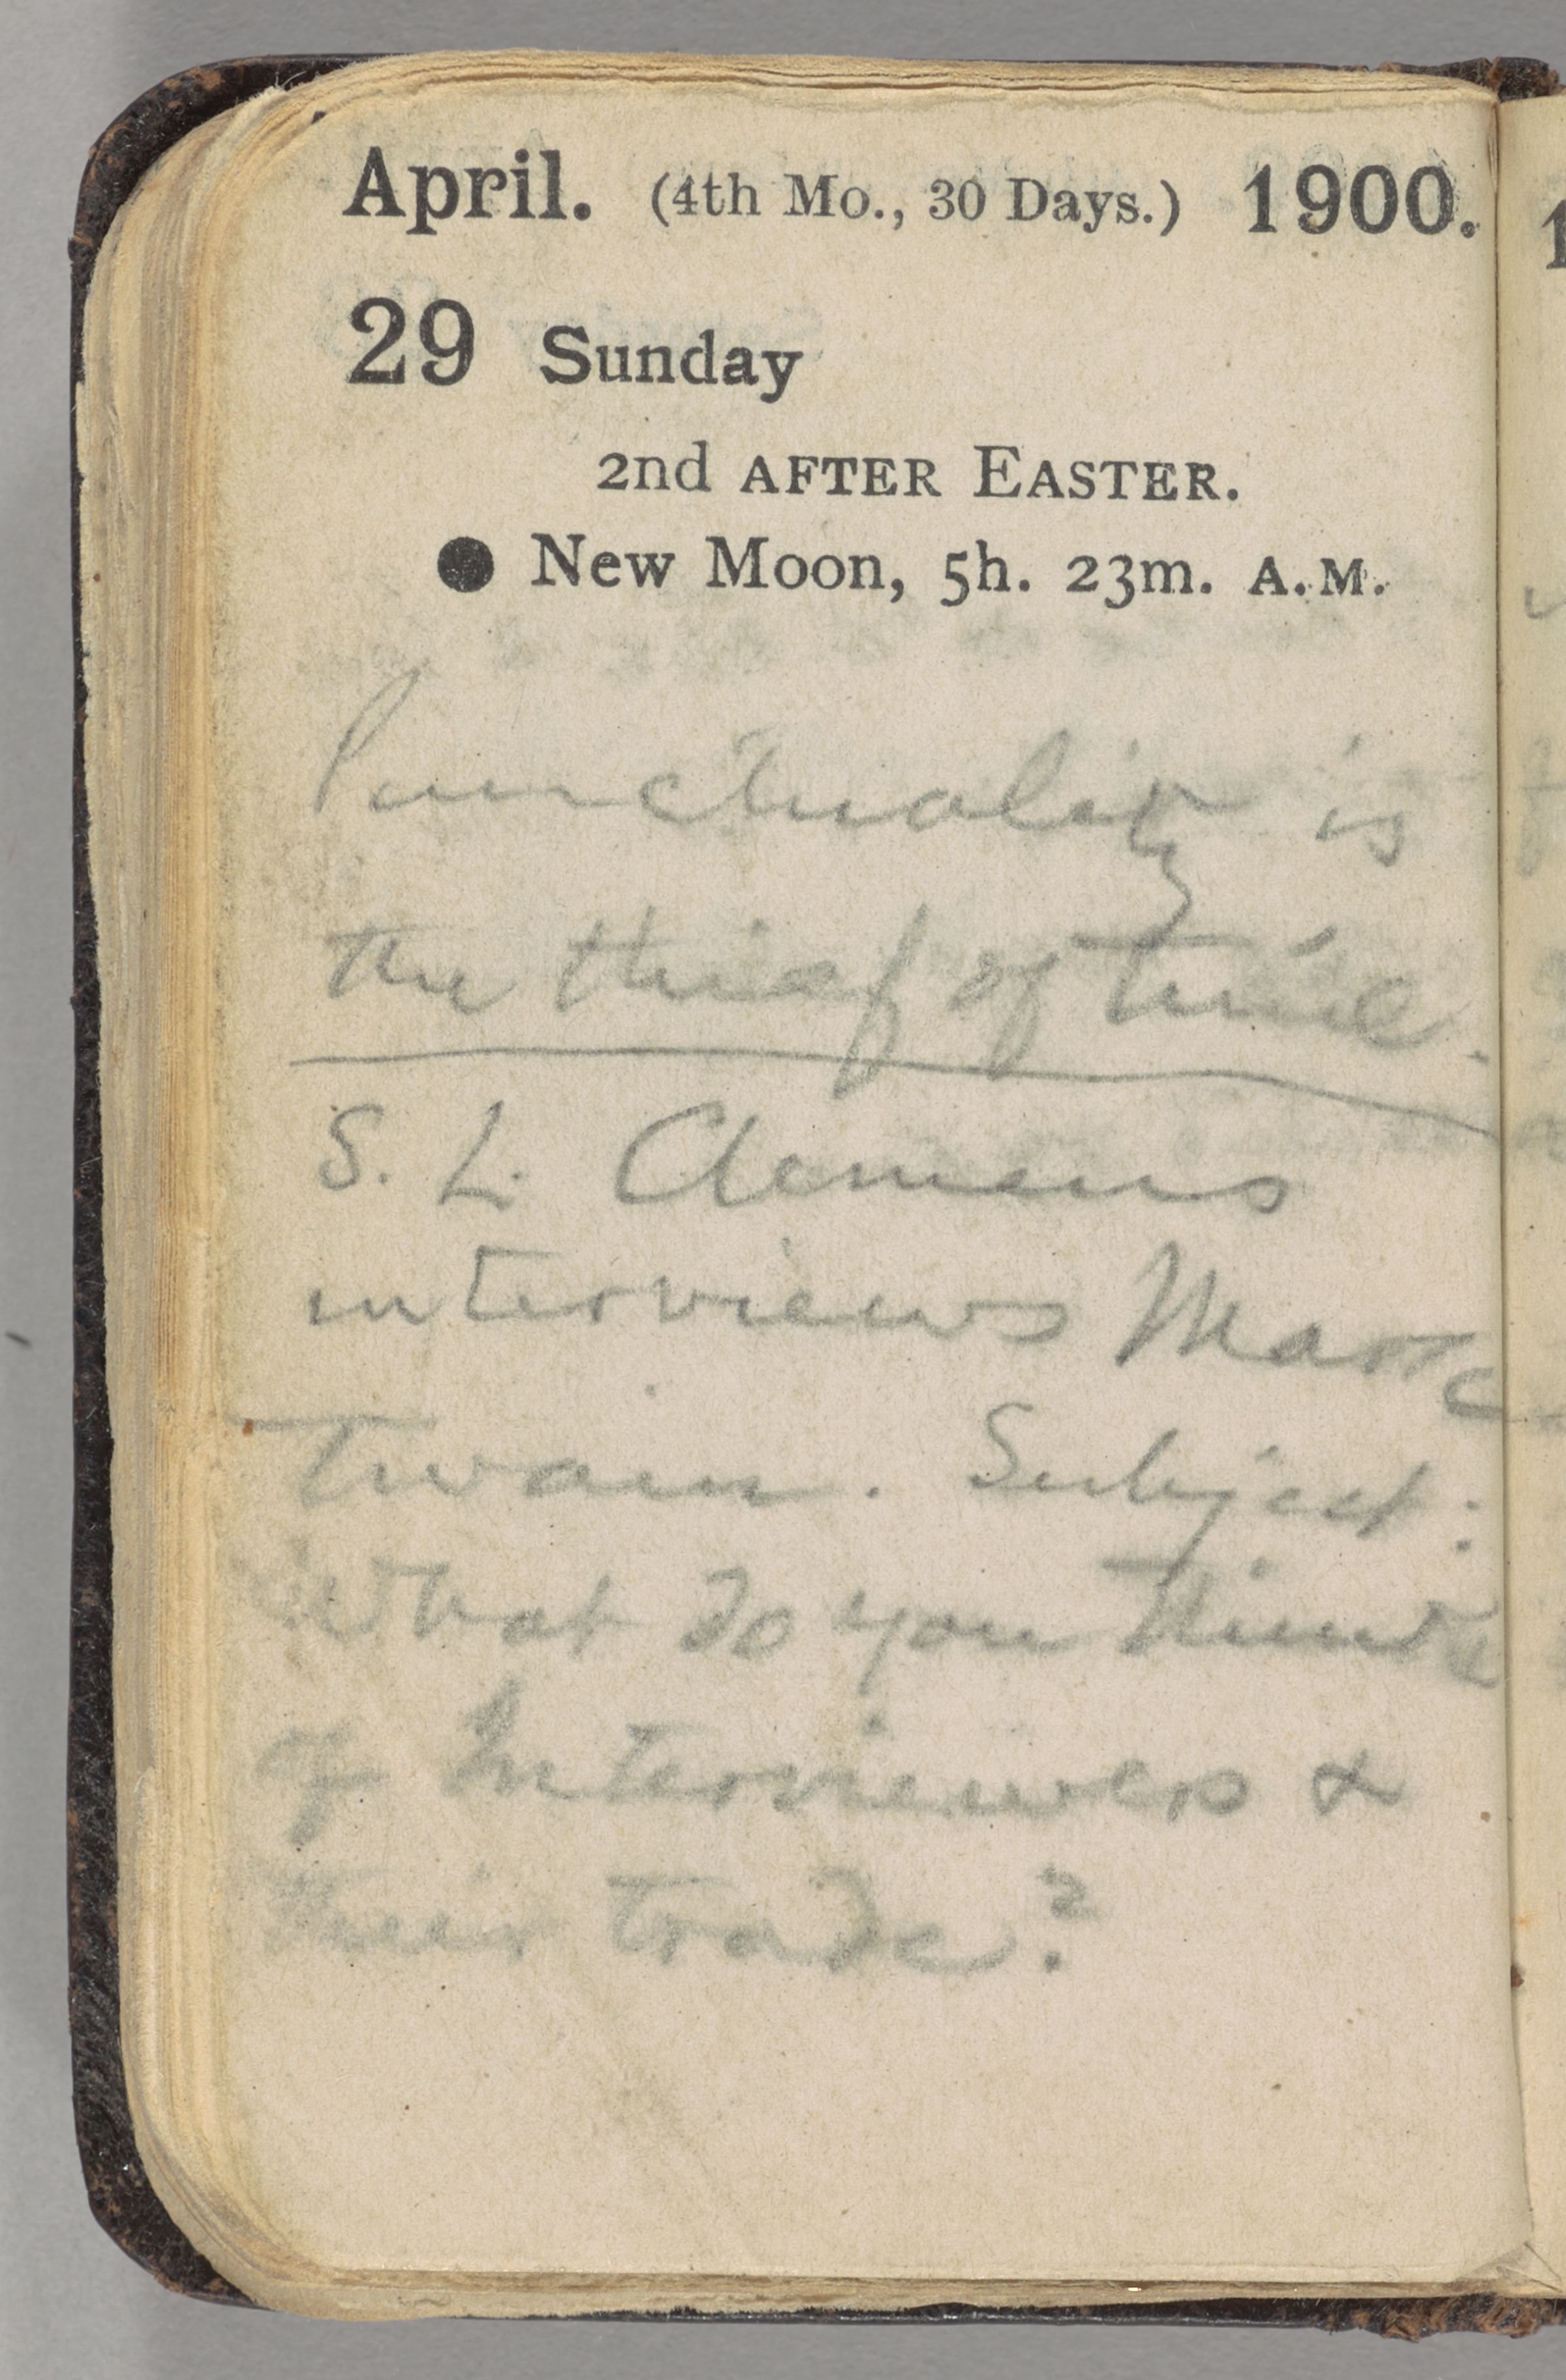 April. (4th Mo., 30 Days.) 1900.
29 Sunday
2nd AFTER EASTER.
● New Moon, 5h. 23m. A.M.
Punctuality is
the thief of time.
S. L. Clemens
interviews Mark
Twain. Subject:
What do you think
of Interviewers &
their trade?